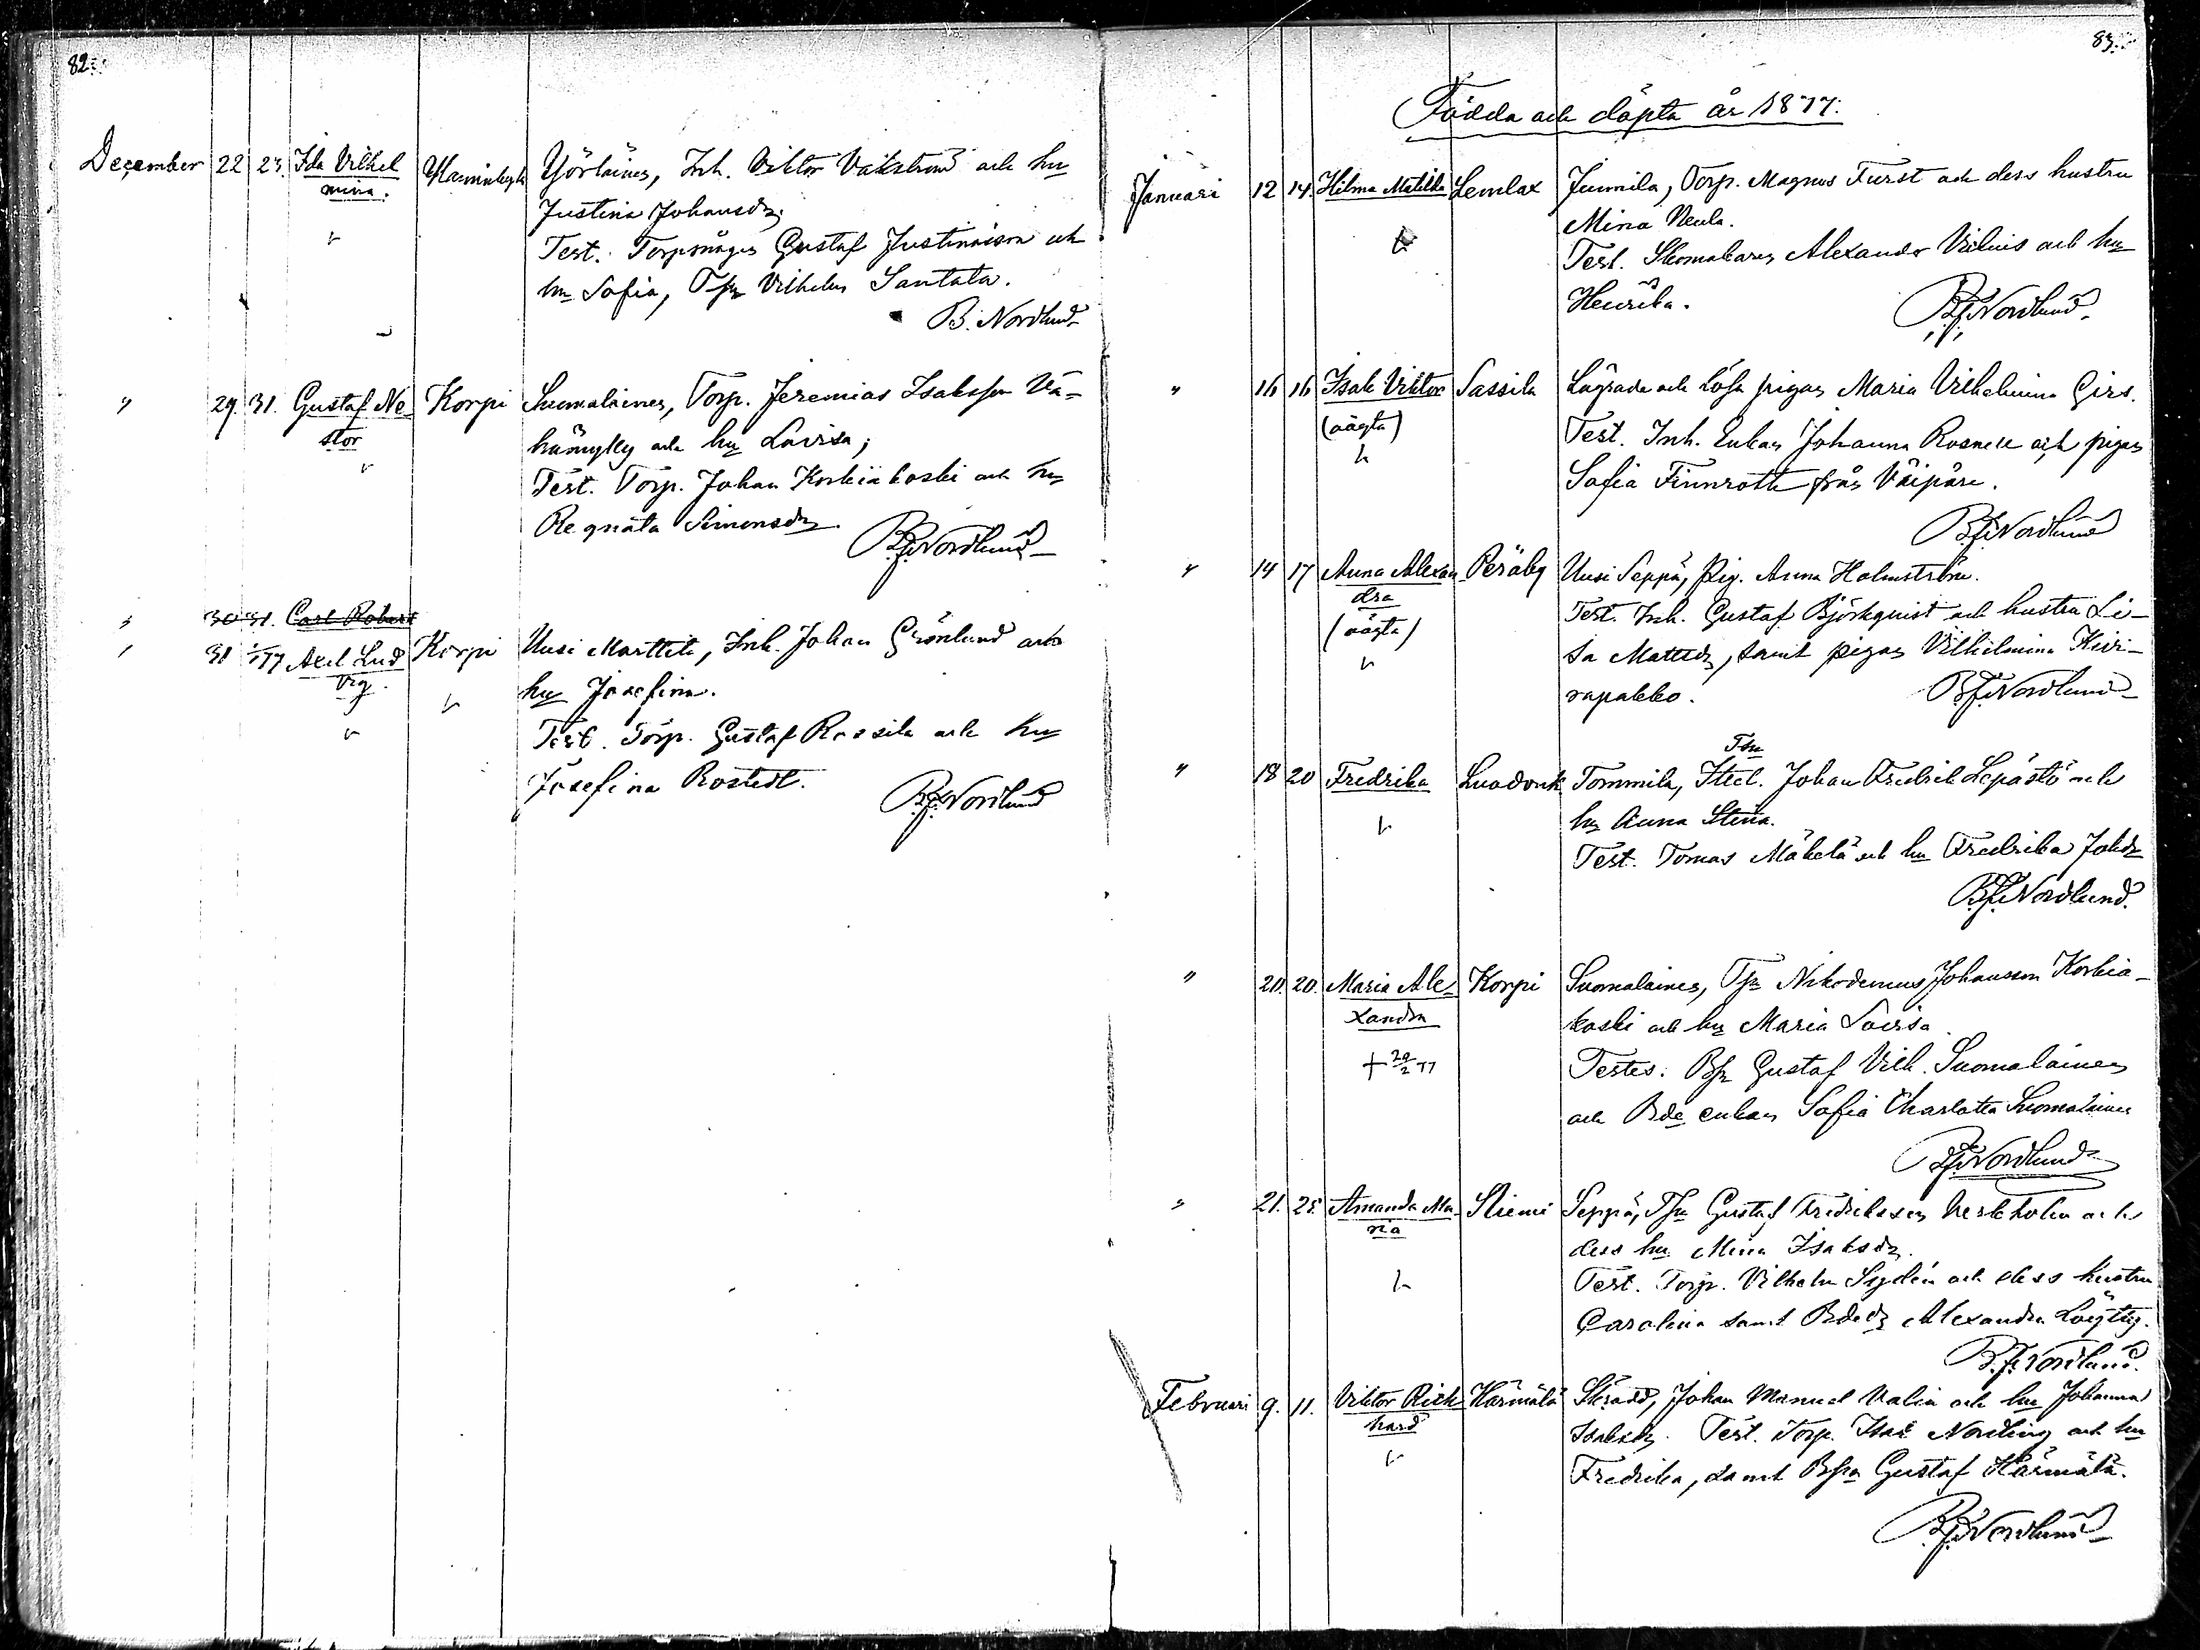 82.
December 22 23. Ida Vilhel
mina.
Yörläinen, Inh. Viktor Vikström och hu
Justina Johansdr.
Test. Torpmågen Gustaf Justinaison och
hu Sofia, Tpr Vilhelm Santala.
B. Nordlund
" 29 31. Gustaf Ne- Korpi Suomalainen, Torp. Jeremias Isaksson Vä-
stor
hämylly och hu Lovisa;
Test. Torp. Johan Korkiakoski och hu
Regnata Simonsdr
B.F. Nordlund
" 30 31. Carl Robert
" 31 1/1 77 Axel Lud Korpi Uusi Marttila, Inh. Johan Grönlund och
vig.
hu Josefina.
Test. Torp. Gustaf Rossila och hu
Josefina Rostedt.
B.F. Nordlund
83.
Födda och döpta år 1877.
Januari 12 14. Hilma Matilda Lemlax Junnila, Torp. Magnus Furst och dess hustru
Mina Neula.
Test. Skomakaren Alexander Vilenis och hu
Henrika.
B.F. Nordlund
" 16 16 Isak Viktor Sassila Lägrade och lösa pigan Maria Vilhelmina Girs.
(oägta)
Test. Inh. Enkan Johanna Rosnell och pigan
Sofia Finnroth från Väipäre.
B.F. Nordlund
" 14 17 Anna Alexan Peräby Uusi Seppä, Pig. Anna Holmström.
dra
(oägta)
Test. Inh. Gustaf Björkqvist och hustru Li-
sa Mattsdr, samt pigan Vilhelmina Kivi-
rapakko.
B.F. Nordlund
" 18 20 Fredrika Tommila, Johan Fredrik Lepistö och
hu Anna Stina.
Test. Tomas Mäkelä och hu Fredrika Johdr
B.F. Nordlund.
" 20. 20. Maria Ale- Korpi Suomalainen, Tpr Nikodemus Johansson Korkia-
xandra
koski och hu Maria Lovisa.
+ 29/2 77
Testes: Bpr Gustaf Vilh. Suomalainen
och Bde enkan Sofia Charlotta Suomalainen
B.F. Nordlund
" 21. 25. Amanda Ma- Seppä, Tpr Gustaf Fredriksson och
ria
dess hu Mina Isaksdr.
Test. Torp. Vilhelm Sydén och dess hustru
Carolina samt Bdedr Alexandra Löyttty.
B.F. Nordlund.
Februari 9. 11. Viktor Rick Härmälä Skradd, Johan Manuel Valin och hu Johanna
hard
Isaksdr. Test. Torp. Isak Nordling och hu
Fredrika, samt Bpr Gustaf Härmälä.
B.F. Nordlund